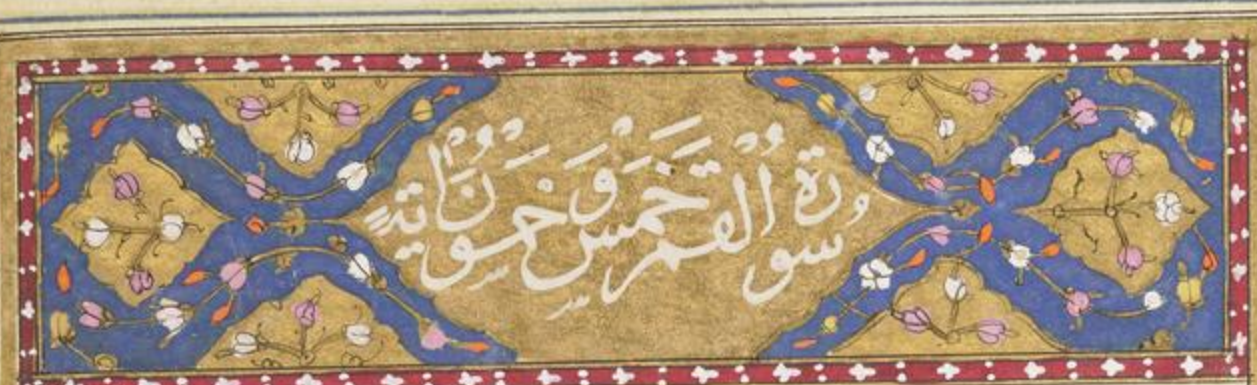 سُورَةُ الْقَمَرِ خَمْسٌ وَخَمْسُونَ اٰيَةً